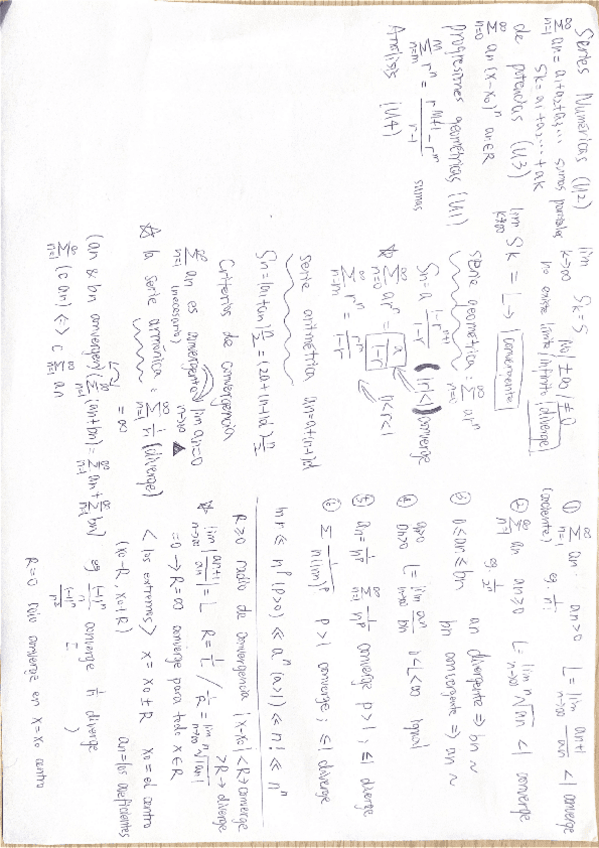 Series Numéricas (U2)
∞Σn=1 an = a1+a2+a3... sumas parciales
Sk = a1+a2...+ak
lim k→∞ Sk = S
No ±∞ / ≠0
no existe límite/infinito | diverge
de potencias (U3)
∞Σn=0 an (x-x0)^n an∈R
lim k→∞ Sk = L → convergente
progresiones geométricas (U1)
MΣn=m r^n = (r^(M+1) - r^m)/(r-1) sumas
Análisis (U4)
serie geométrica: ∞Σn=1 ar^n
Sn = a (1-r^(n+1))/(1-r) (|r|<1) converge
☆ ∞Σn=0 ar^n = a/(1-r) 0<r<1
∞Σn=m r^n = r^m/(1-r)
serie aritmética an=a+(n-1)d
Sn=(a1+an)n/2 = (2a+(n-1)d)n/2
Criterios de convergencia
∞Σn=1 an es convergente → lim n→∞ an=0
(necesario)
☆ la serie armónica: ∞Σn=1 1/n (diverge)
= ∞
(an & bn convergen) (∞Σn=1 (an+bn) = ∞Σn=1 an + ∞Σn=1 bn)
∞Σn=1 (c an) <=> c ∞Σn=1 an
① ∞Σn=1 an an>0 L = lim n→∞ an+1/an <1 converge
(cociente) eg. n!
② ∞Σn=1 an an≥0 L = lim n→∞ n√an <1 converge
③ 0≤an≤bn an divergente ⇒ bn ~
bn convergente ⇒ an ~
④ an≥0 bn>0 L = lim n→∞ an/bn 0<L<∞ igual
⑤ an = 1/n^p ∞Σn=1 1/n^p converge p>1 ; ≤1 diverge
⑥ Σ 1/n(ln n)^p p>1 converge ; ≤1 diverge
ln n ≪ n^p (p>0) ≪ a^n (a>1) ≪ n! ≪ n^n
R≥0 radio de convergencia |x-x0|<R→converge
>R→diverge
☆ lim n→∞ |an+1/an| = L R = 1/L / 1/R = lim n→∞ n√|an|
=0→R=∞ converge para todo x∈R
< los extremos > x = x0±R x0=el centro
(x0-R, x0+R) an=los coeficientes
eg (-1)^n/n converge 1/n diverge
R=0 sólo converge en x=x0 centro